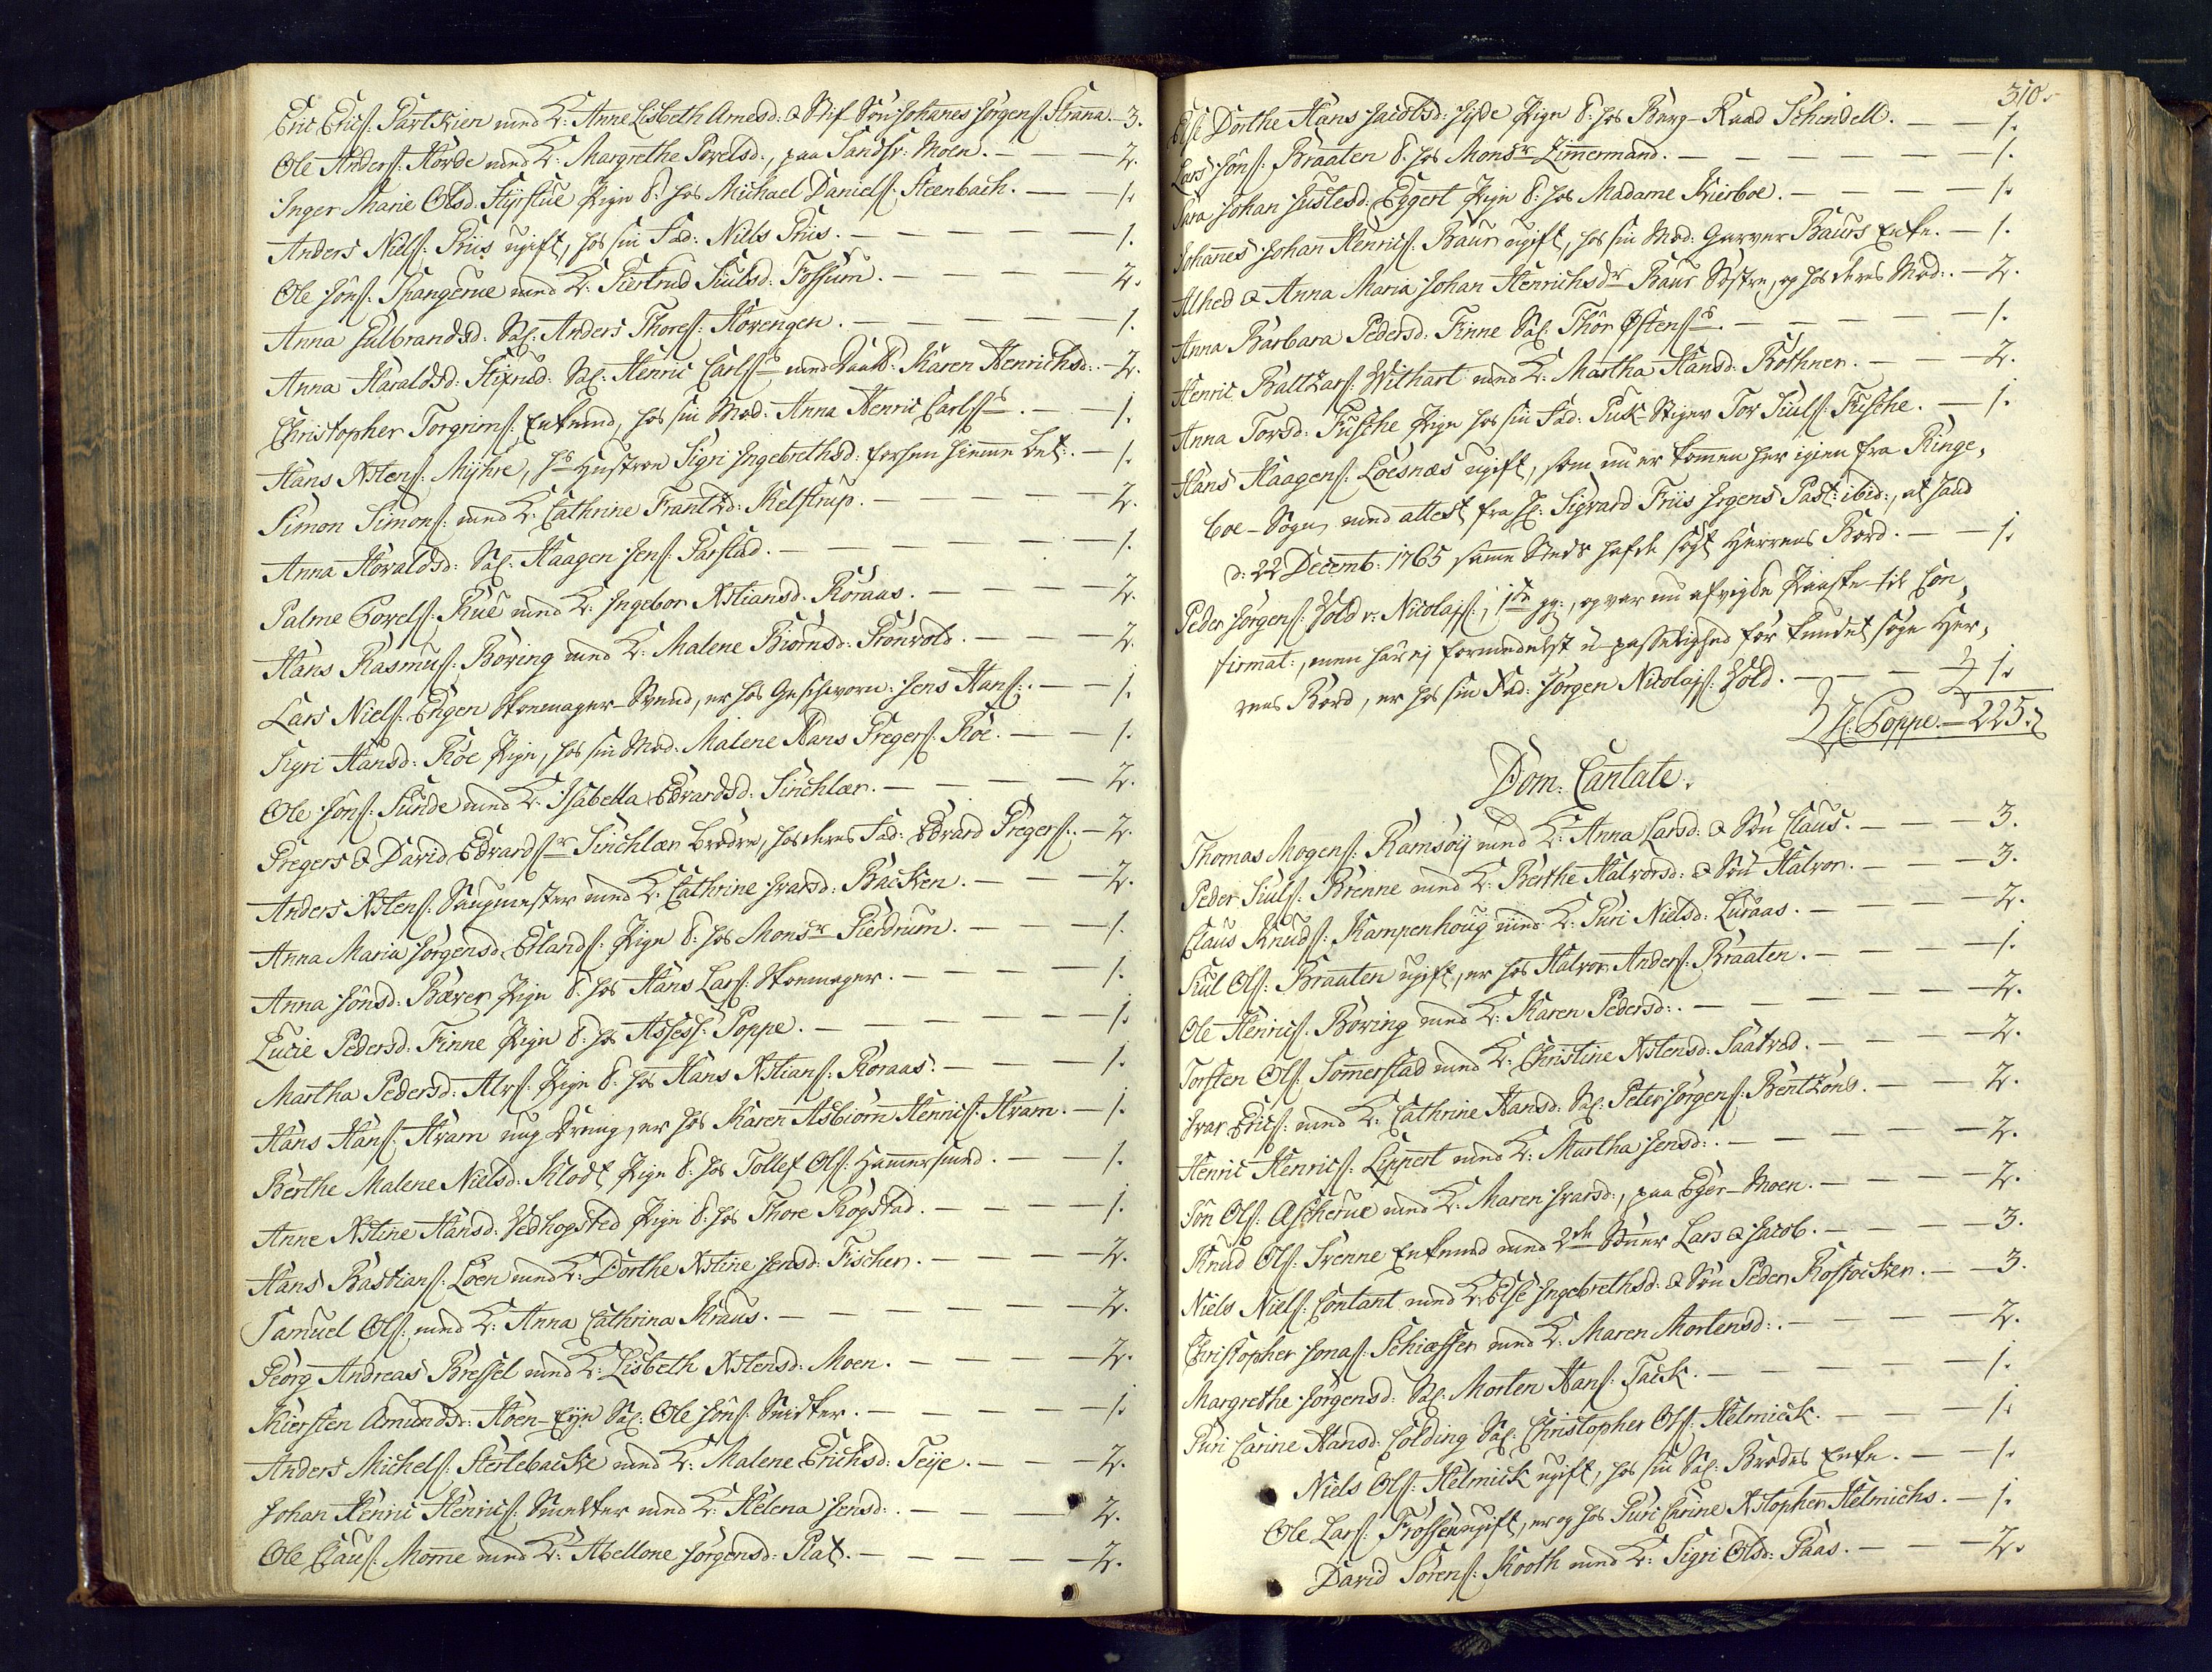 Eric Erics: Partskier med K: Anne Lisbeth Arnesd: & Stif Søn Johanes Jørgens: Strana. — 3.
Ole Anders: Horde med K: Margrethe Povelsd:, paa Sandsv: Moen. — — 2.
Inger Marie Olsd: Styrstue Pige T: hos Michael Daniels: Steenbach. — — 1.
Anders Niels: Friis ugift, hos sin Fad: Niels Friis. — — — — 1.
Ole Jöns: Spangerue med K: Giertrud Siulsd: Fossum. — — — 2.
Anna Gulbrandsd: Sal: Anders Thores: Hovengen. — — — — 1.
Anna Haraldsd: Sal: Henric Carls: med Daat: Karen Henrichsd: — 2.
Christopher Torgrims: Enkemd, hos sin Mod: Anna Henric Carls: — 1.
Hans Xstens: Myhre, hs Hustroe Sigri Ingebrethsd: forhen hiemme bet: — 1.
Simon Simons: med K: Cathrine Frantzd: Kelstrup. — — — 2.
Anna Hovaldsd: Sal: Haagen Jens: Garstad. — — — — 1.
Palme Povels: Rue med K: Ingebor Xstiansd: Roraas. — — — 2.
Hans Rasmus: Boring med K: Malene Biörnsd: Grönvold. — — 2.
Lars Niels: Engen Skomager-Svend, er hos Geschworn: Jens Hans: — — 1.
Sigri Hansd: Röe Pige, hos sin Mod: Malene Hans Gregers: Röe. — — 1.
Ole Jöns: Sunde med K: Isabella Edvardsd: Sinchlær. — — — 2.
Gregers & David Edvards: Sinchlær brødre, hos deres Fad: Edvard Gregers: — 2.
Anders Xstens: Saugmester med K: Cathrine Ivarsd: Backen. — — 2.
Anna Maria Jörgensd: Erlands: Pige T: hos Monsr Gierdrum. — — 1.
Anna Jönsd: Bæver Pige T: hos Hans Lars: Skomager. — — — 1.
Lucie Pedersd: Finne Pige T: hos Assess: Poppe. — — — — 1.
Martha Pedersd: Alvs: Pige T: hos Hans Xstians: Roraas. — — 1.
Hans Hans: Hram ung Dreng, er hos Karen Asbiörn Henrics: Hram. — 1.
Berthe Malene Nielsd: Klodt Pige T: hos Tollef Ols: Hammersmed. — — 1.
Anne Xstine Hansd: Vedhogsted Pige T: hos Thore Rogstad. — — 1.
Hans Bastians: Loen med K: Dorthe Xstine Jensd: Fischer. — — 2.
Samuel Ols: med K: Anna Cathrina Kraus. — — — — 2.
Georg Andreas Bressel med K: Lisbeth Xstensd: Moen. — — — 2.
Kiersten Amundsd: Hoen-Eye Sal: Ole Jöns: Snidker. — — — 1.
Anders Michels: Stertebacke med K: Malene Erichsd: Teije. — — 2.
Johan Henric Henrics: Smelter med K: Helena Jensd: — — — 2.
Ole Claus: Momme med K: Abellone Jörgensd: Plat. — — — — 2.
310.
Else Dorthe Hans Jacobsd: Hyde Pige T: hos Berg-Raad Schindell. — — 1.
Lars Jöns: Braaten T: hos Monsr Zimmermand. — — — — 1.
Sara Johan Justesd: Eggert Pige T: hos Madame Kierboe. — — — 1.
Johannes Johan Henrics: Baur ugift, hos sin Mod: Garver Baurs Enke. — 1.
Alhed & Anna Maria Johan Henrichsdr Baur Søstre, og hos deres Mod: — 2.
Anna Barbara Pedersd: Finne Sal: Thor Østens: — — — — 1.
Henric Baltzars: Withart med K: Martha Hansd: Rothner. — — 2.
Anna Torsd: Fusche Pige hos sin Fad: Puk-Stiger Tor Siuls: Fusche. — 1.
Hans Haagens: Loesnæs ugift, som nu er kommen her igien fra Ringe-
boe-Sogn med attest fra Hr: Sigvard Friis Jrgens Past: ibid:, at hand
d: 22 Decemb: 1765 samme Steds hafde søgt Herrens Bord. — — 1.
Peder Jörgens: Vold v: Nicolajs:, 1ste gg:, og var nu afvigte Paaske til Con-
firmat:, men har ej formedelst u-passelighed för kundet søge Her-
rens Bord, er hos sin Fad: Jörgen Nicolajs: Vold. — — — 1.
Hr: Poppe. — 225.
Dom: Cantate.
Thomas Mogens: Ramsöij med K: Anna Larsd: & Søn Claus. — — 3.
Peder Siuls: Brenne med K: Berthe Halvorsd: & Søn Halvor. — — 3.
Claus Knuds: Kampenhoug med K: Guri Nielsd: Luraas. — — — 2.
Siul Ols: Braaten ugift, er hos Halvor Anders: Braaten. — — 1.
Ole Henrics: Boring med K: Karen Pedersd: — — — — 2.
Torsten Ols: Sommerstad med K: Christine Xstensd: Saatved. — — 2.
Ivar Erics: med K: Cathrine Hansd: Sal: Peter Jörgens: Bentzöns. — — 2.
Henric Henrics: Lippert med K: Martha Jensd: — — — — 2.
Jön Ols: Ascherue med K: Maren Ivarsd:, paa Eger-Moen. — — 2.
Knud Ols: Svenne Enkemd med 2de Sønner Lars & Jacob. — — — 3.
Niels Niels: Contant med K: Else Ingebrethsd: & Søn Peder Rostocker. — 3.
Christopher Jonas: Schiæffer med K: Maren Mortensd: — — — 2.
Margrethe Jörgensd: Sal: Morten Hans: Tack. — — — — 1.
Guri Carine Hansd: Colding Sal: Christopher Ols: Helmick. — — 1.
Niels Ols: Helmick ugift, hos sin Sal: Broders Enke. — — 1.
Ole Lars: Frossen ugift, er og hos Guri Carine Xstopher Helmichs. — 1.
David Sörens: Kooth med K: Sigri Olsd: Paas. — — — 2.